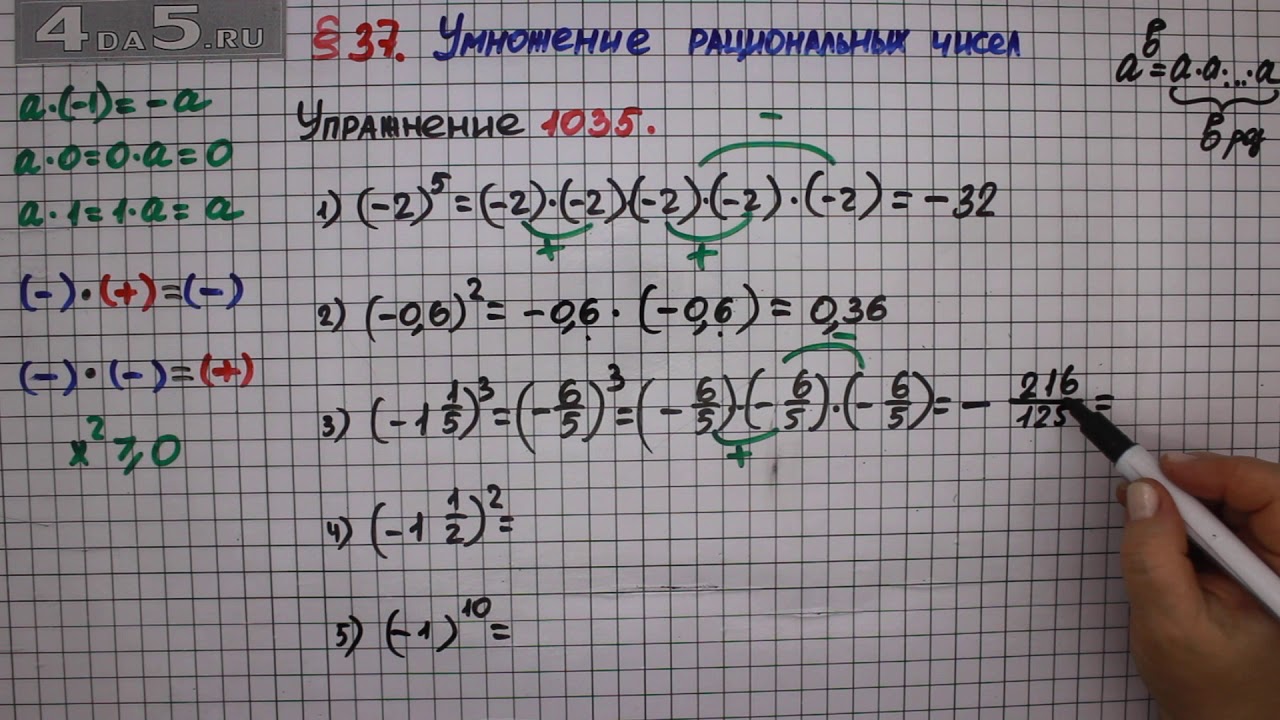 4DA5.RU
§ 37. Умножение рациональных чисел
a^в = a·a·...·a
в раз
a·(-1)=-a
a·0=0·a=0
a·1=1·a=a
(-)·(+)=(-)
(-)·(-)=(+)
x² ⩾ 0
Упражнение 1035.
-
1) (-2)⁵=(-2)·(-2)(-2)·(-2)·(-2)=-32
+ +
2) (-0,6)²=-0,6·(-0,6)=0,36
-
3) (-1 1/5)³=(-6/5)³=(-6/5)·(-6/5)·(-6/5)=-216/125=
+
4) (-1 1/2)²=
5) (-1)¹⁰=